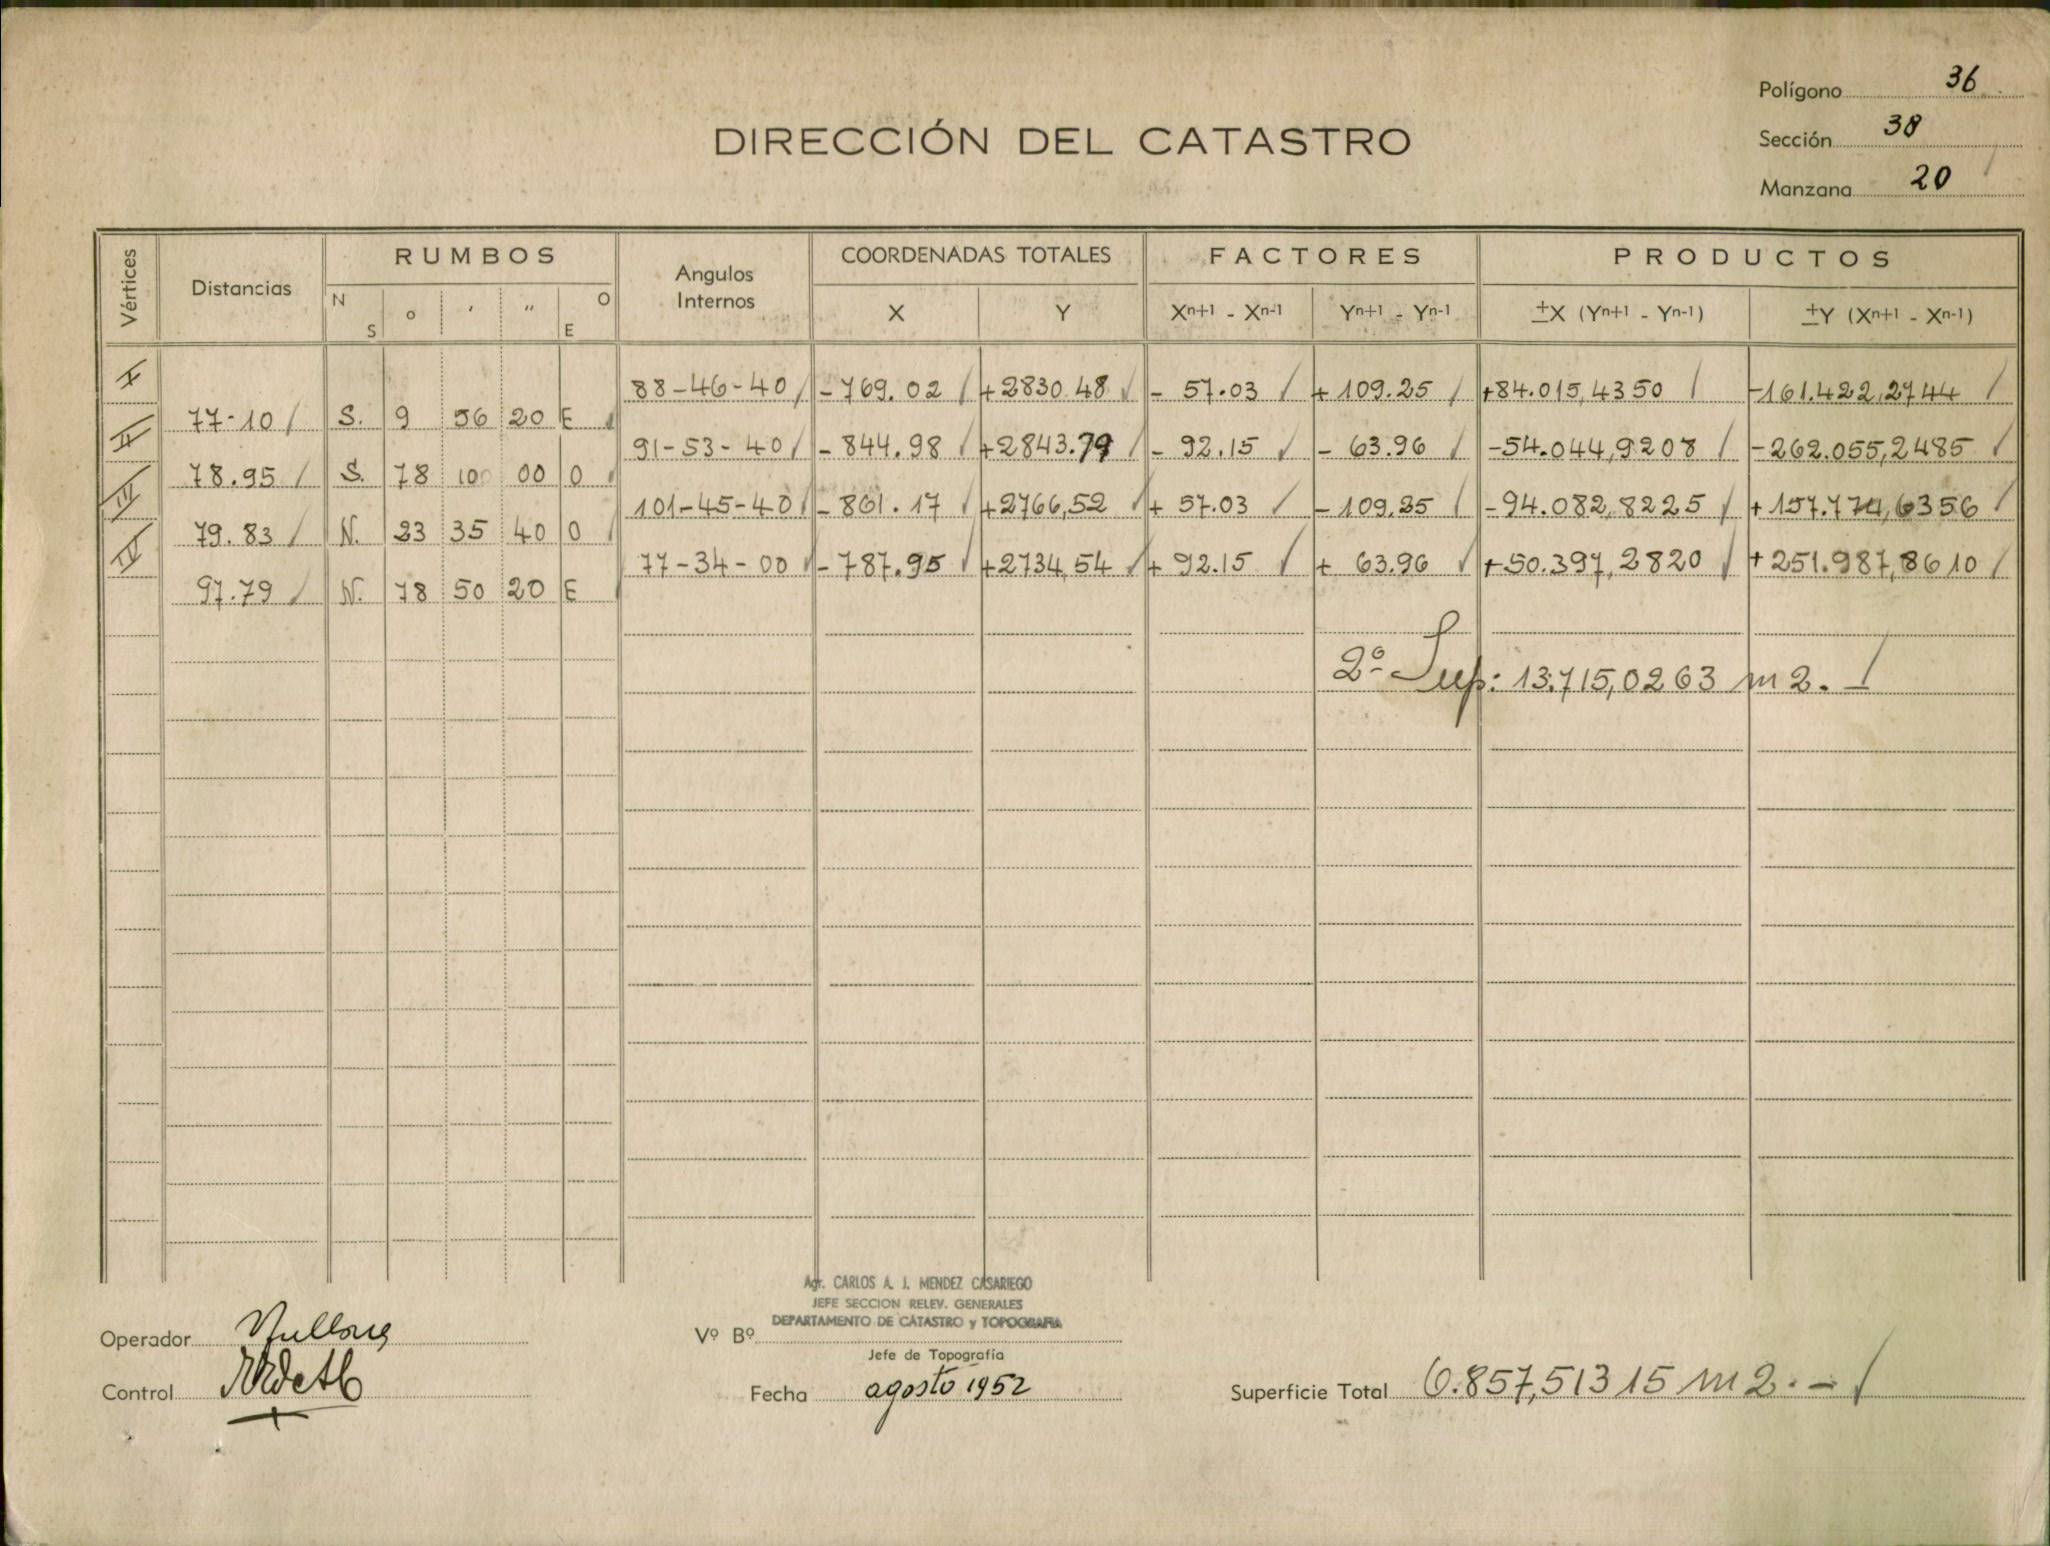 Polígono 36
Sección 38
Manzana 20
DIRECCIÓN DEL CATASTRO
Vértices Distancias RUMBOS Angulos Internos COORDENADAS TOTALES FACTORES PRODUCTOS
N S o ' " O E X Y Xn+1 - Xn-1 Yn+1 - Yn-1 ±X (Yn+1 - Yn-1) ±Y (Xn+1 - Xn-1)
I 88-46-40 -769.02 +2830.48 - 57.03 + 109.25 +84.015,4350 -161.422,2744
77-10 S. 9 56 20 E
II 91-53-40 -844.98 +2843.79 - 92.15 - 63.96 -54.044,9208 -262.055,2485
78.95 S. 78 10 00 O
III 101-45-40 -861.17 +2766,52 + 57.03 -109.25 -94.082,8225 +157.774,6356
79.83 N. 23 35 40 O
IV 77-34-00 -787.95 +2734,54 + 92.15 + 63.96 +50.397,2820 +251.987,8610
97.79 N. 78 50 20 E
2º Sup: 13.715,0263 m2.
Agr. CARLOS A. J. MENDEZ CASARIEGO
JEFE SECCION RELEV. GENERALES
DEPARTAMENTO DE CATASTRO y TOPOGRAFIA
Operador
Vº Bº
Jefe de Topografía
Control
Fecha agosto 1952
Superficie Total 6.857,51315 m2.-